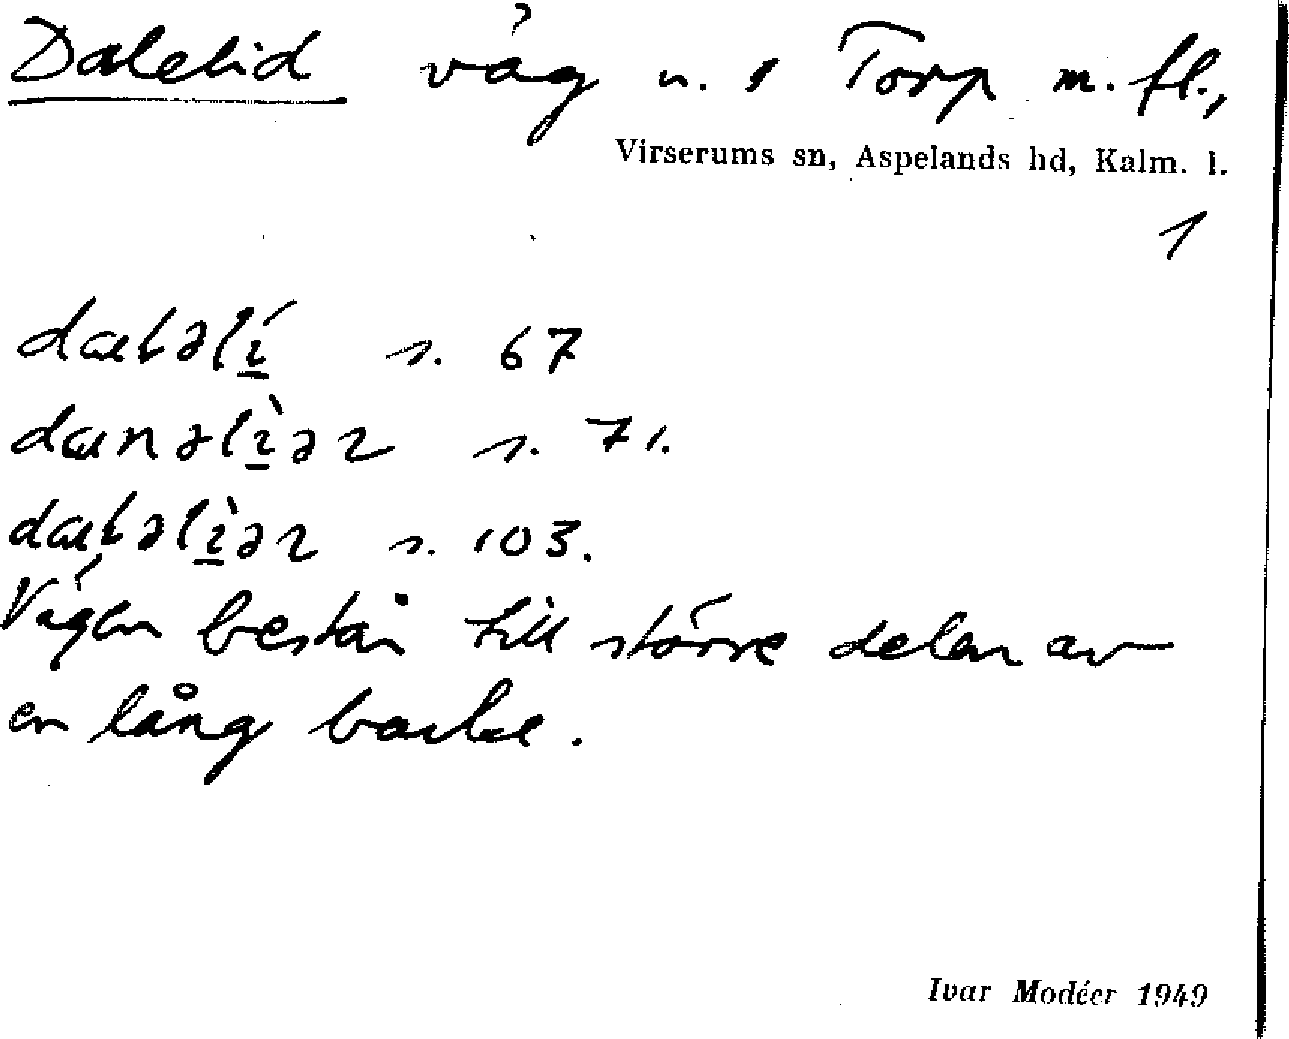 Dalelid väg u. 1 Torp m. fl.,
Virserums sn, Aspelands hd, Kalm. l.
1
s. 67
s. 71.
s. 103.
Vägen består till större delen av
en lång backe.
Ivar Modéer 1949